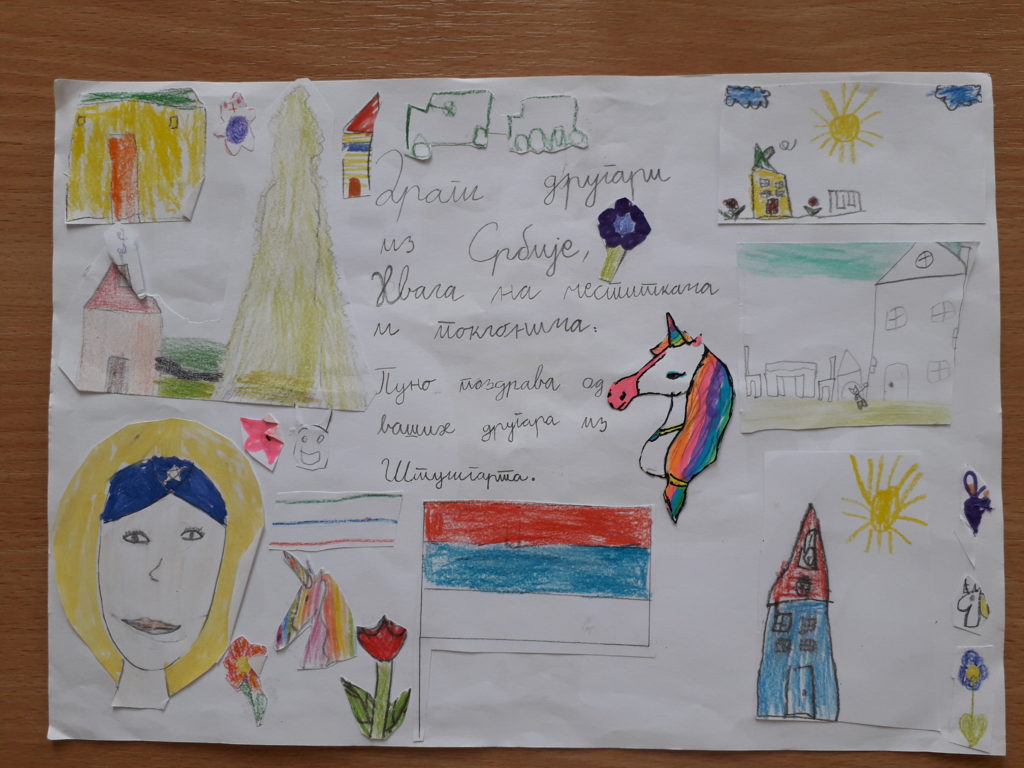 Драги другари
из Србије,
Хвала на честиткама
и поклонима.
Пуно поздрава од
ваших другара из
Штутгарта.